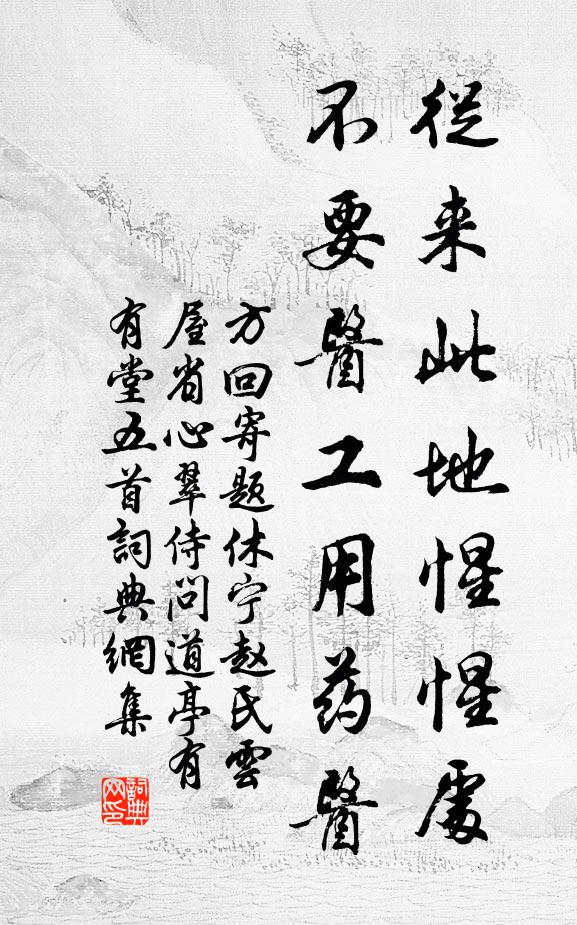 從来此地惺惺處
不要醫工用药醫
方回寄题休宁赵民雲
屋省心翠侍问道亭有
有堂五首詞典網集
詞典网印